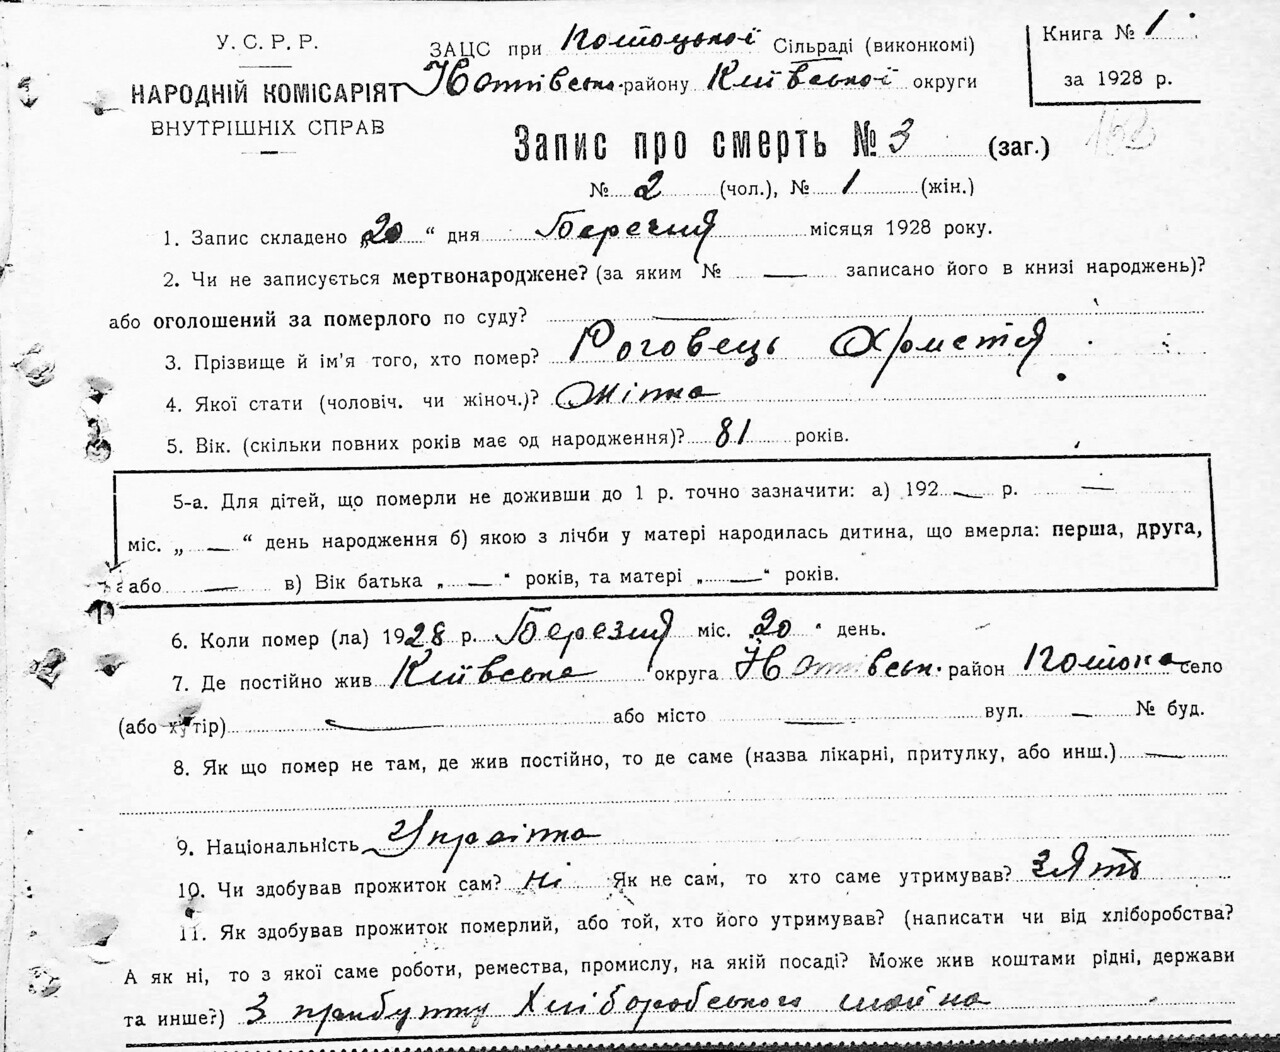 У. С. Р. Р.
НАРОДНІЙ КОМІСАРІЯТ
ВНУТРІШНІХ СПРАВ
ЗАЦС при Потоцької Сільраді (виконкомі)
району Київської округи
Книга № 1
за 1928 р.
162
Запис про смерть № 3 (заг.)
№ 2 (чол.), № 1 (жін.)
1. Запис складено „20“ дня Березня місяця 1928 року.
2. Чи не записується мертвонароджене? (за яким № — записано його в книзі народжень)?
або оголошений за померлого по суду? —
3. Прізвище й ім’я того, хто помер? Роговець Христя
4. Якої стати (чоловіч. чи жіноч.)? Жінка
5. Вік. (скільки повних років має од народження)? 81 років.
5-а. Для дітей, що померли не доживши до 1 р. точно зазначити: а) 192 — р. —
міс. „ — “ день народження б) якою з лічби у матері народилась дитина, що вмерла: перша, друга,
або — в) Вік батька „ — “ років, та матері „ — “ років.
6. Коли помер (ла) 1928 р. Березня міс. 20 " день.
7. Де постійно жив Київська округа район село
(або хутір) — або місто — вул. — № буд.
8. Як що помер не там, де жив постійно, то де саме (назва лікарні, притулку, або инш.) —
9. Національність Українка
10. Чи здобував прожиток сам? Ні Як не сам, то хто саме утримував? Зять
11. Як здобував прожиток померлий, або той, хто його утримував? (написати чи від хліборобства?
А як ні, то з якої саме роботи, ремества, промислу, на якій посаді? Може жив коштами рідні, держави
та инше?) З прибутку Хліборобського майна